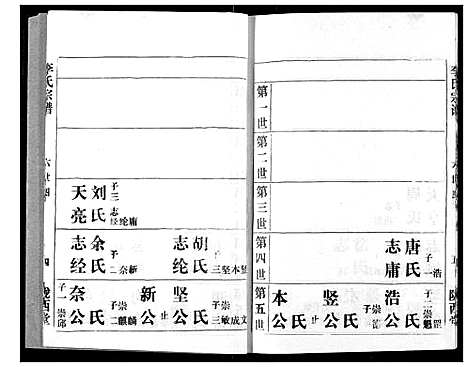 李氏宗谱
第一世
第二世
第三世
第四世
第五世
唐氏 子一浩
志庸
浩公 氏 子二崇魁
竖公 氏 子崇
本公 止
陇西堂
李氏宗谱
刘氏 子三 志经纶庸
天亮
胡氏 子三 坚本竖
志纶
余氏 子二 奈新
志经
坚公 氏 子三崇文成敏
新公 止
奈公 氏 子二崇麟麒
子一崇邱
四
陇西堂